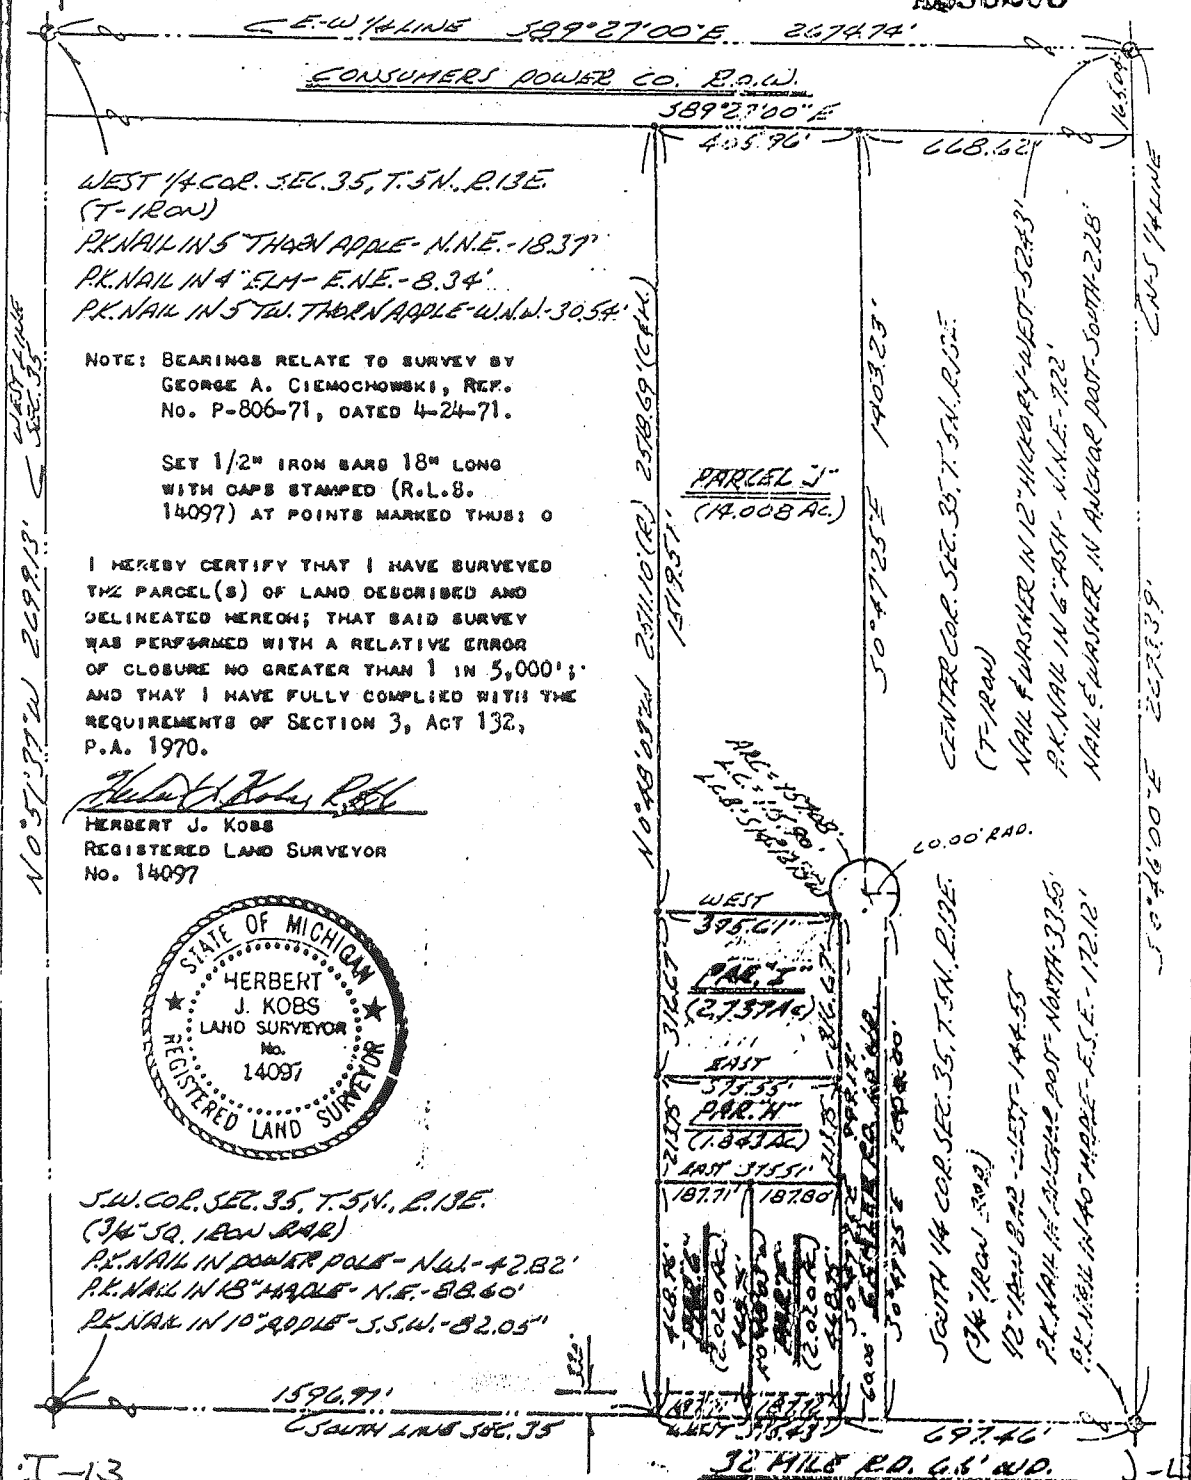 E-W 1/4 LINE S89°27'00"E 2674.74'
CONSUMERS POWER CO. R.O.W.
S89°27'00"E
405.96'
668.62'
165.04'
WEST 1/4 COR. SEC. 35, T.5N., R.13E.
(T-IRON)
P.K. NAIL IN 5" THORN APPLE - N.N.E. - 18.37'
P.K. NAIL IN 4" ELM - E.N.E. - 8.34'
P.K. NAIL IN 5" TW. THORN APPLE - W.N.W. - 30.54'
NOTE: BEARINGS RELATE TO SURVEY BY
GEORGE A. CIEMOCHOWSKI, REF.
No. P-806-71, DATED 4-24-71.
SET 1/2" IRON BARS 18" LONG
WITH CAPS STAMPED (R.L.S.
14097) AT POINTS MARKED THUS: O
I HEREBY CERTIFY THAT I HAVE SURVEYED
THE PARCEL(S) OF LAND DESCRIBED AND
DELINEATED HEREON; THAT SAID SURVEY
WAS PERFORMED WITH A RELATIVE ERROR
OF CLOSURE NO GREATER THAN 1 IN 5,000';
AND THAT I HAVE FULLY COMPLIED WITH THE
REQUIREMENTS OF SECTION 3, ACT 132,
P.A. 1970.
HERBERT J. KOBS
REGISTERED LAND SURVEYOR
No. 14097
STATE OF MICHIGAN
HERBERT
J. KOBS
LAND SURVEYOR
No.
14097
REGISTERED LAND SURVEYOR
S.W. COR. SEC. 35, T.5N., R.13E.
(3/4" SQ. IRON BAR)
P.K. NAIL IN POWER POLE - N.W. - 42.82'
P.K. NAIL IN 18" MAPLE - N.E. - 88.60'
P.K. NAIL IN 10" APPLE - S.S.W. - 82.05'
WEST LINE
SEC. 35
N0°51'37"W 2699.13'
N0°48'03"W 2511.10'(R) 2518.69'(C&M.)
1519.51'
PARCEL "J"
(14.008 AC.)
S0°47'25"E 1403.23'
CENTER COR. SEC. 35, T.5N., R.13E.
(T-IRON)
NAIL & WASHER IN 12" HICKORY - WEST - 52.43'
P.K. NAIL IN 6" ASH - N.N.E. - 7.22'
NAIL & WASHER IN ANCHOR POST - SOUTH - 2.28'
N-S 1/4 LINE
S0°46'00"E
60.00' RAD.
WEST
395.61'
PAR. "I"
(2.737 AC)
316.67'
316.67'
EAST
375.55'
PAR. "H"
(1.843 AC)
213.75'
213.75'
EAST 375.51'
187.71'
187.80'
468.75'
(2.020 AC)
468.75'
(2.020 AC)
468.75'
S0°47'25"E
60.00'
SOUTH 1/4 COR. SEC. 35, T.5N., R.13E.
(3/4" IRON BAR)
1/2" IRON BAR - WEST - 144.55
P.K. NAIL IN ANCHOR POST - NORTH - 33.65'
P.K. NAIL IN 40" MAPLE - E.S.E. - 172.12'
1596.97'
SOUTH LINE SEC. 35
697.46'
32 MILE RD. 66' WD.